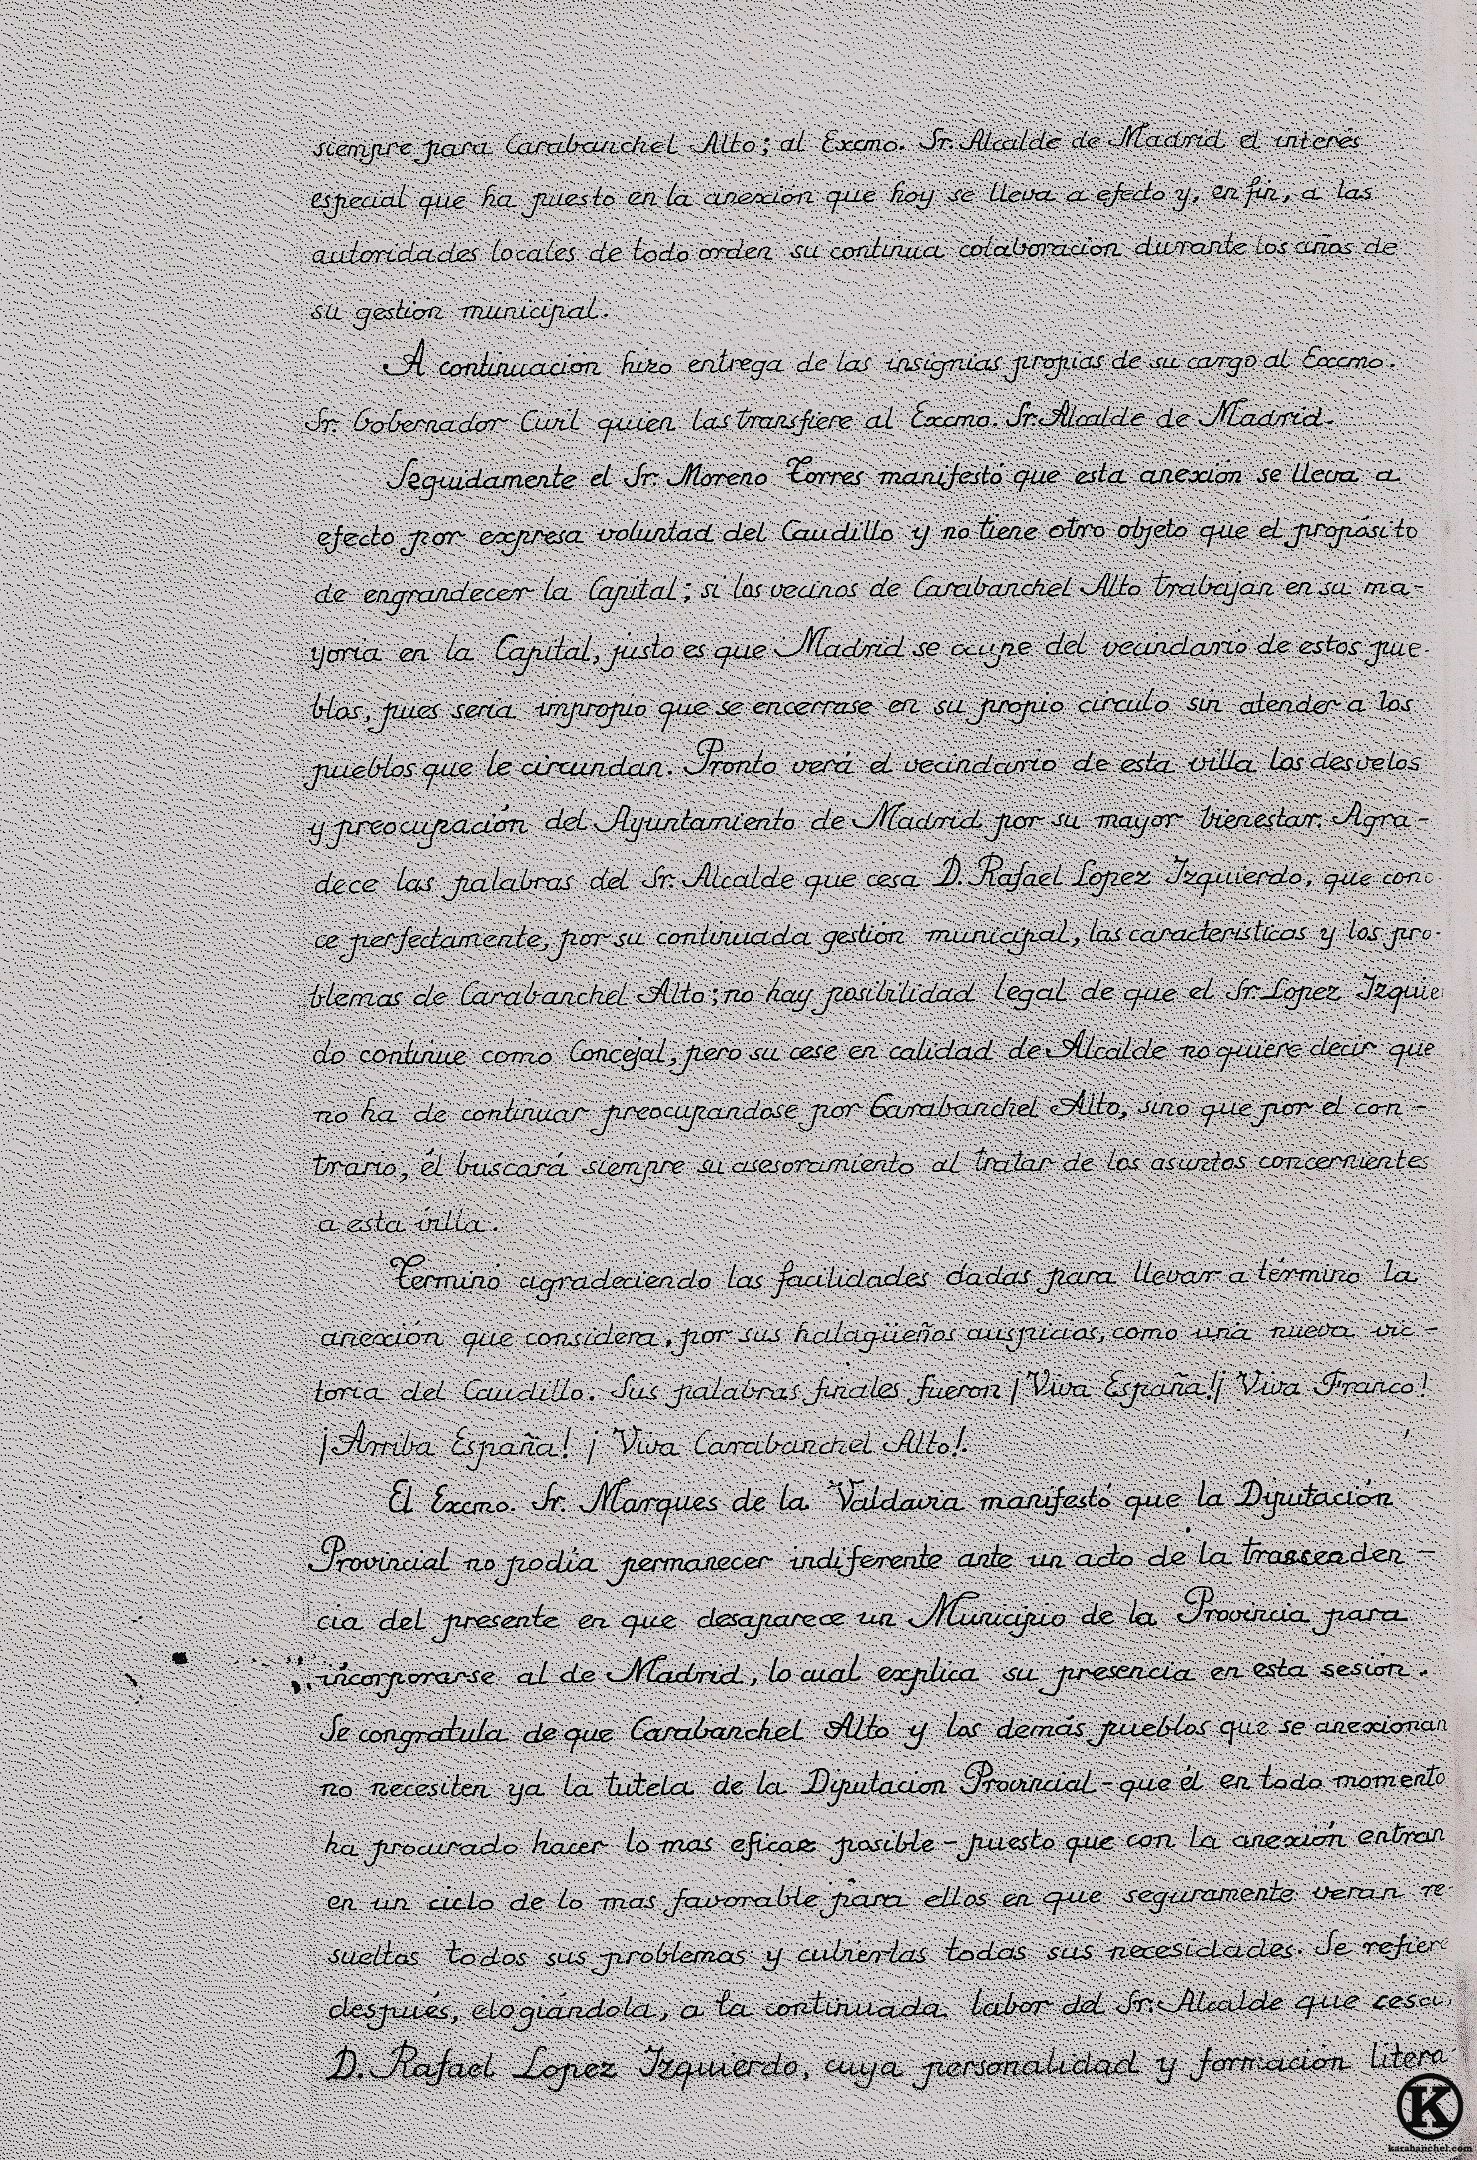 siempre para Carabanchel Alto; al Excmo. Sr. Alcalde de Madrid el interés
especial que ha puesto en la anexión que hoy se lleva a efecto y, en fin, a las
autoridades locales de todo orden su continua colaboracion durante los años de
su gestión municipal.
A continuación hizo entrega de las insignias propias de su cargo al Excmo.
Sr. Gobernador Civil quien las transfiere al Excmo. Sr. Alcalde de Madrid.
Seguidamente el Sr. Moreno Torres manifestó que esta anexión se lleva a
efecto por expresa voluntad del Caudillo y no tiene otro objeto que el propósito
de engrandecer la Capital; si los vecinos de Carabanchel Alto trabajan en su ma-
yoria en la Capital, justo es que Madrid se ocupe del vecindario de estos pue-
blos, pues seria impropio que se encerrase en su propio circulo sin atender a los
pueblos que le circundan. Pronto verá el vecindario de esta villa los desvelos
y preocupación del Ayuntamiento de Madrid por su mayor bienestar. Agra-
dece las palabras del Sr. Alcalde que cesa D. Rafael Lopez Izquierdo, que cono
ce perfectamente, por su continuada gestión municipal, las caracteristicas y los pro-
blemas de Carabanchel Alto; no hay posibilidad legal de que el Sr. Lopez Izquier
do continue como Concejal, pero su cese en calidad de Alcalde no quiere decir que
no ha de continuar preocupandose por Carabanchel Alto, sino que por el con-
trario, él buscará siempre su asesoramiento al tratar de los asuntos concernientes
a esta villa.
Terminó agradeciendo las facilidades dadas para llevar a término la
anexión que considera, por sus halagüeños auspicios, como una nueva vic-
toria del Caudillo. Sus palabras finales fueron ¡Viva España! ¡Viva Franco!
¡Arriba España! ¡Viva Carabanchel Alto!.
El Excmo. Sr. Marques de la Valdavia manifestó que la Diputación
Provincial no podía permanecer indiferente ante un acto de la trascenden-
cia del presente en que desaparece un Municipio de la Provincia para
incorporarse al de Madrid, lo cual explica su presencia en esta sesión.
Se congratula de que Carabanchel Alto y los demás pueblos que se anexionan
no necesiten ya la tutela de la Diputacion Provincial - que él en todo momento
ha procurado hacer lo mas eficaz posible - puesto que con la anexión entran
en un ciclo de lo mas favorable para ellos en que seguramente veran re-
sueltos todos sus problemas y cubiertas todas sus necesidades. Se refiere
después, elogiándola, a la continuada labor del Sr. Alcalde que cesa,
D. Rafael Lopez Izquierdo, cuya personalidad y formación litera-
K
karabanchel.com